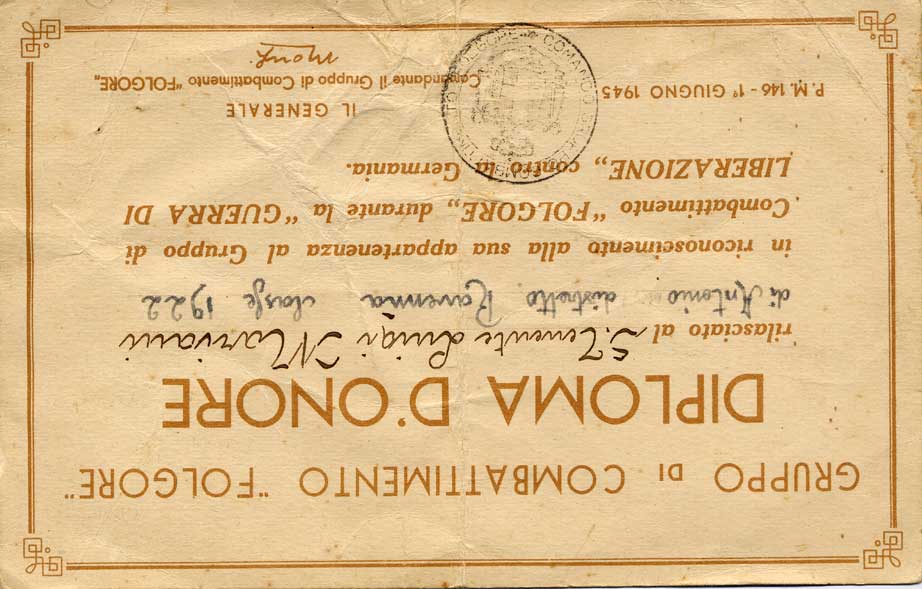 GRUPPO DI COMBATTIMENTO "FOLGORE"
DIPLOMA D'ONORE
rilasciato al S. Tenente Luigi Mariani
di Antonio distretto Ravenna classe 1922
in riconoscimento alla sua appartenenza al Gruppo di
Combattimento "FOLGORE„ durante la "GUERRA DI
LIBERAZIONE„ contro la Germania.
P. M. 146 - 1° GIUGNO 1945
IL GENERALE
Comandante il Gruppo di Combattimento "FOLGORE„